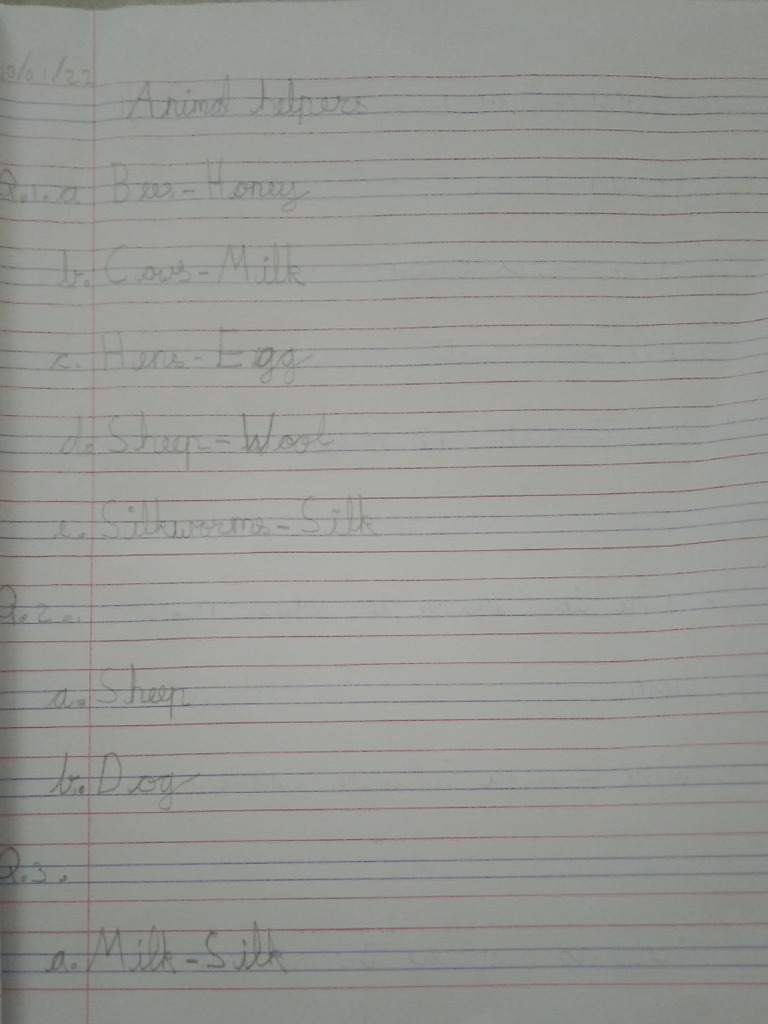 10/01/22
Animal helpers
Q.1. a Bees - Honey
b. Cows - Milk
c. Hens - Egg
d. Sheep - Wool
e. Silkworms - Silk
Q.2.
a. Sheep
b. Dog
Q.3.
a. Milk - Silk